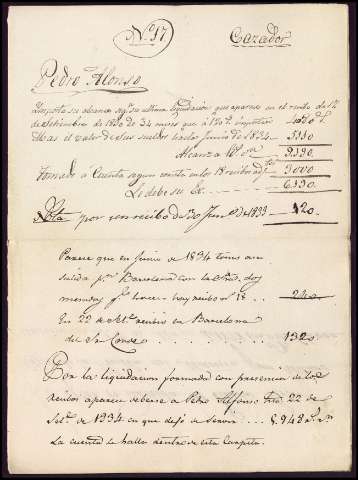 Nº 17
Cazador
Pedro Alonso
Importa su alcance segn su ultima liquidacion que aparece en el recibo de 12
de Setiembre de 1830 de 34 meses que à 120 rs importan
Mas el valor de sus sueldos hasta Junio de 1834 5110
Alcanza Rs vn 9190
Tomado à Cuenta segun consta en los 18 recibos 3000
Le debe su Ex 6190
Nota por un recibo de 30 Jun de 1833 120
Parece que en Junio de 1834 tomo a su
salida pa Barcelona con la dos
mesadas 240
En 22 de Set recibio en Barcelona
del Sr Conde 1320
Por la liquidacion formada con presencia de los
recibos aparece deberse a Pedro Alfonso 22 de
Set de 1834 en que dejó de servir 5.948 rs vn
La cuenta se halla dentro de esta Carpeta